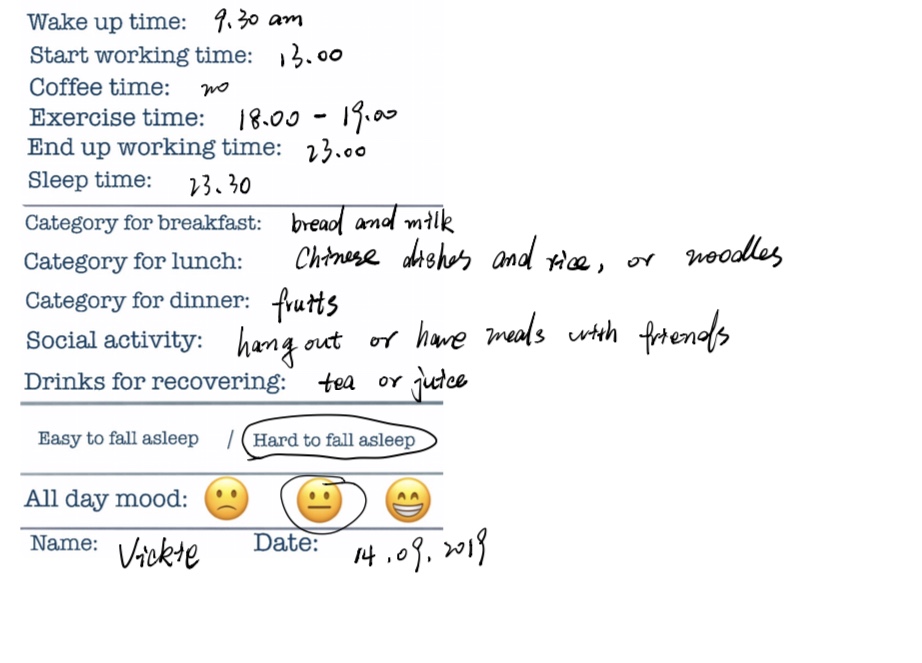 Wake up time: 9.30 am
Start working time: 13.00
Coffee time: no
Exercise time: 18.00 - 19.00
End up working time: 23.00
Sleep time: 23.30
Category for breakfast: bread and milk
Category for lunch: Chinese dishes and rice, or noodles
Category for dinner: fruits
Social activity: hang out or have meals with friends
Drinks for recovering: tea or juice
Easy to fall asleep / Hard to fall asleep
All day mood:
Name: Vickie Date: 14.09.2019